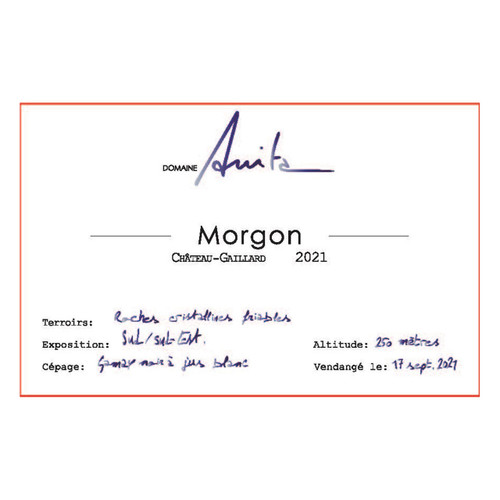 DOMAINE Anita
Morgon
CHÂTEAU-GAILLARD 2021
Terroirs: Roches cristallines friables
Exposition: Sud/sud-Est.
Altitude: 250 mètres
Cépage: Gamay noir à jus blanc
Vendangé le: 17 sept. 2021